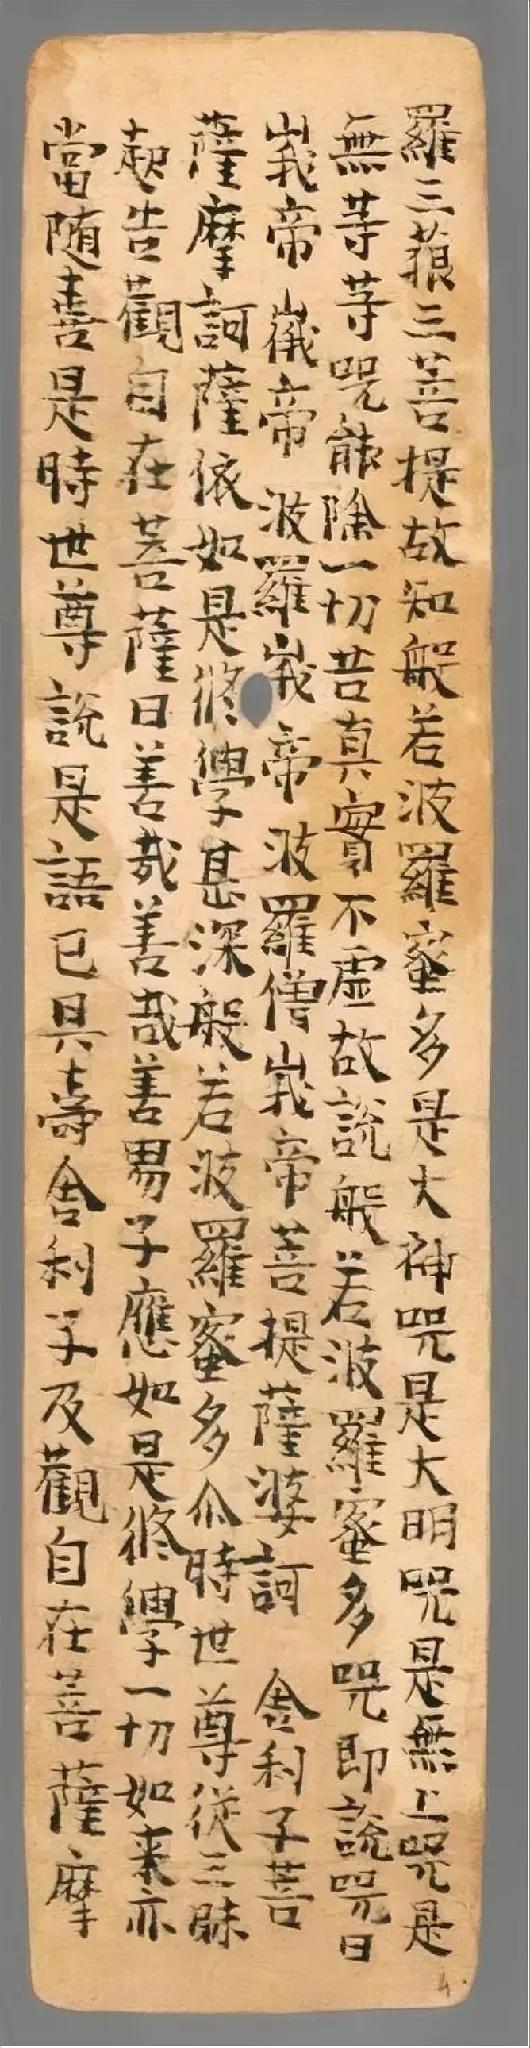 羅三藐三菩提故知般若波羅蜜多是大神咒是大明咒是無上咒是
無等等咒能除一切苦真實不虛故說般若波羅蜜多咒即說咒曰
峩帝峩帝波羅峩帝波羅僧峩帝菩提薩婆訶 舍利子菩
薩摩訶薩依如是修學甚深般若波羅蜜多尒時世尊從三昧
起告觀自在菩薩曰善哉善哉善男子應如是修學一切如来亦
當随喜是時世尊說是語已具壽舍利子及觀自在菩薩摩